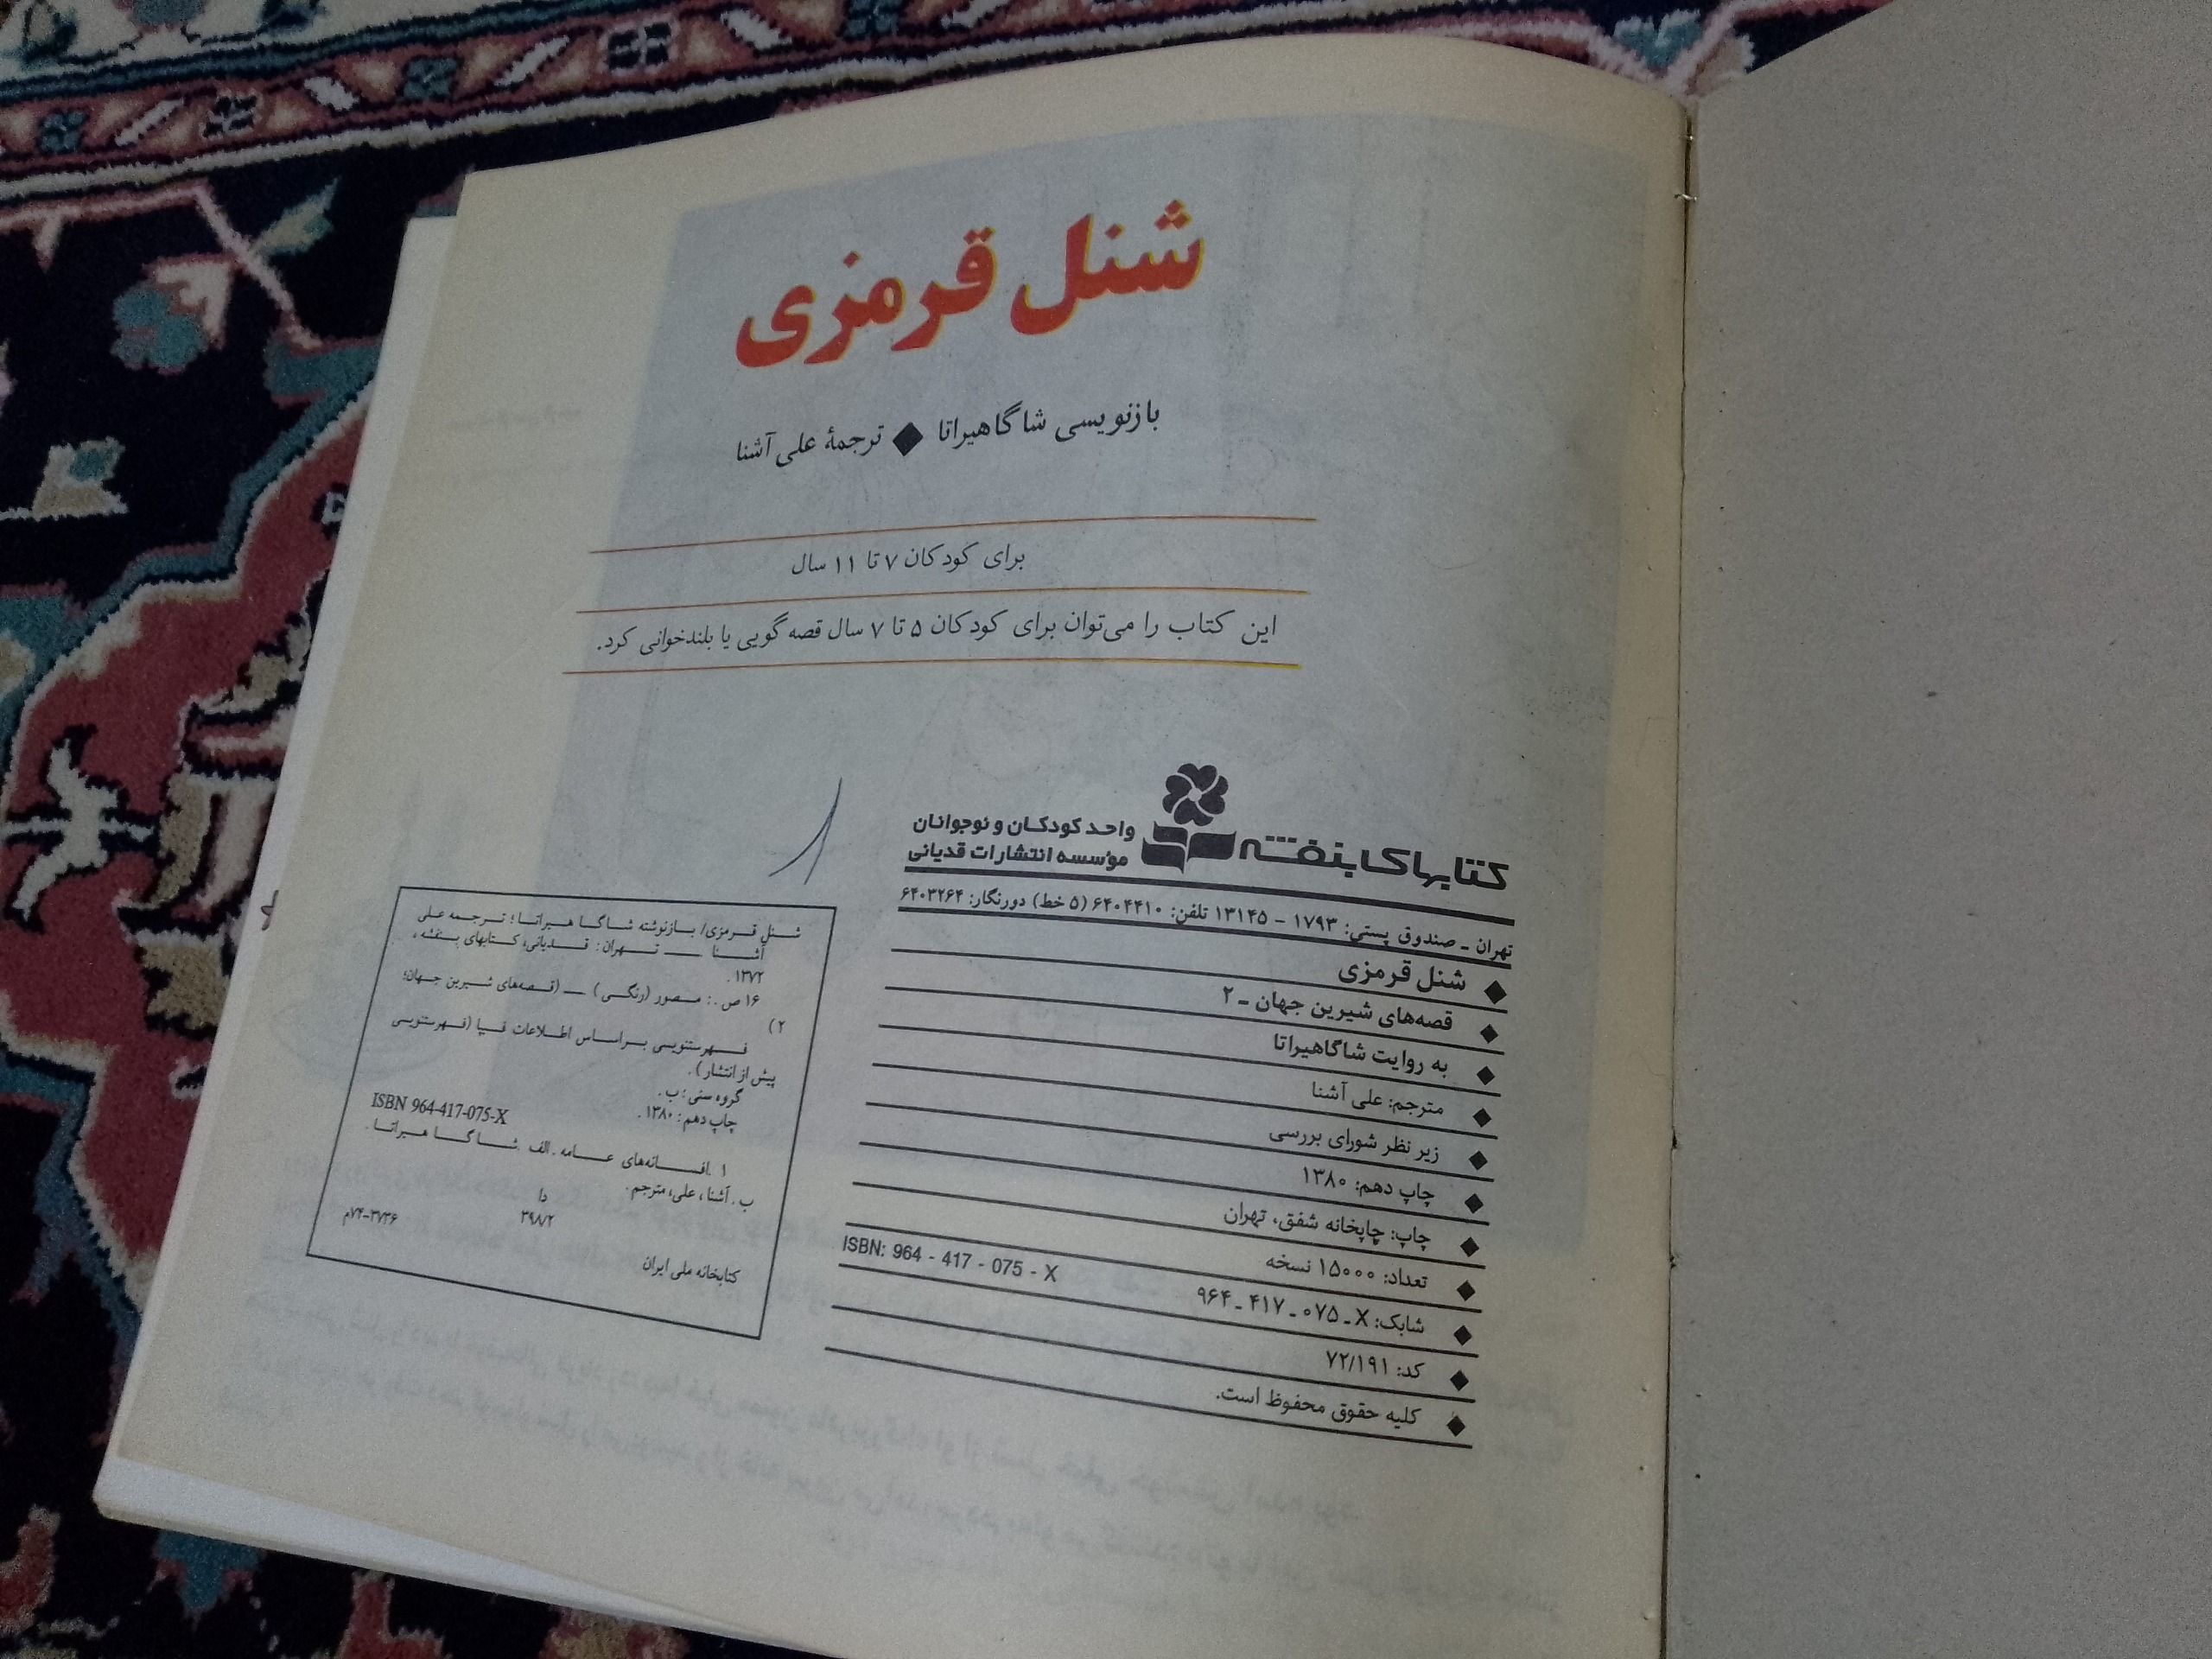 شنل قرمزی
بازنویسی شاگاهیراتا ◆ ترجمهٔ علی آشنا
برای کودکان ۷ تا ۱۱ سال
این کتاب را می‌توان برای کودکان ۵ تا ۷ سال قصه‌گویی یا بلندخوانی کرد.
کتابهای بنفشه
واحد کودکان و نوجوانان
مؤسسه انتشارات قدیانی
تهران ـ صندوق پستی: ۱۷۹۳ – ۱۳۱۴۵ تلفن: ۶۴۰۴۴۱۰ (۵ خط) دورنگار: ۶۴۰۳۲۶۴
◆ شنل قرمزی
◆ قصه‌های شیرین جهان ـ ۲
◆ به روایت شاگاهیراتا
◆ مترجم: علی آشنا
◆ زیر نظر شورای بررسی
◆ چاپ دهم: ۱۳۸۰
◆ چاپ: چاپخانه شفق، تهران
◆ تعداد: ۱۵۰۰۰ نسخه
◆ شابک: X ـ ۰۷۵ ـ ۴۱۷ ـ ۹۶۴ ISBN: 964 - 417 - 075 - X
◆ کد: ۷۲/۱۹۱
◆ کلیه حقوق محفوظ است.
شنل قرمزی/ بازنوشته شاگا هیراتا؛ ترجمه علی
آشنا ـــ تهران: قدیانی، کتابهای بنفشه،
۱۳۷۲.
۱۶ ص.: مصور (رنگی) ـــ (قصه‌های شیرین جهان؛
۲)
فهرستنویسی براساس اطلاعات فیپا (فهرستنویسی
پیش از انتشار).
گروه سنی: ب.
چاپ دهم: ۱۳۸۰. ISBN 964-417-075-X
۱. افسانه‌های عامه. الف. شاگا هیراتا.
ب. آشنا، علی، مترجم.
دا
۳۹۸/۲
۷۴-۳۷۳۶م
کتابخانه ملی ایران